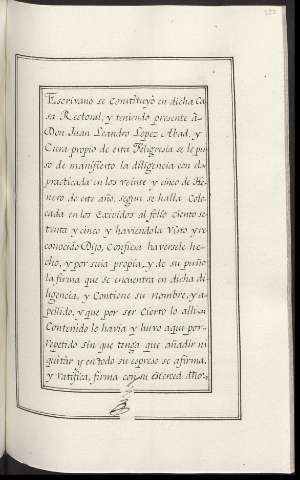 Escrivano se constituyó en dicha Ca
sa Rectoral, y teniendo presente à
Don Juan Leandro Lopez Abad, y
Cura propio de esta Feligresia se le pu
so de manifiesto la diligencia con el
practicada en los veinte y cinco de He
nero de este año, segun se halla Colo
cada en los Exividos al folio Ciento se
tenta y cinco y haviendola Visto y re
conocido Dijo, Confiesa haversele he
cho, y por suia propia, y de su puño
la firma que se encuentra en dicha di
ligencia, y Contiene su nombre, y a
pellido, y que por ser Cierto lo alli
Contenido lo havia y huvo aqui por
repetido sin que tenga que añadir ni
quitar y en todo su expreso se afirma,
y ratifica, firma con su Merced Año